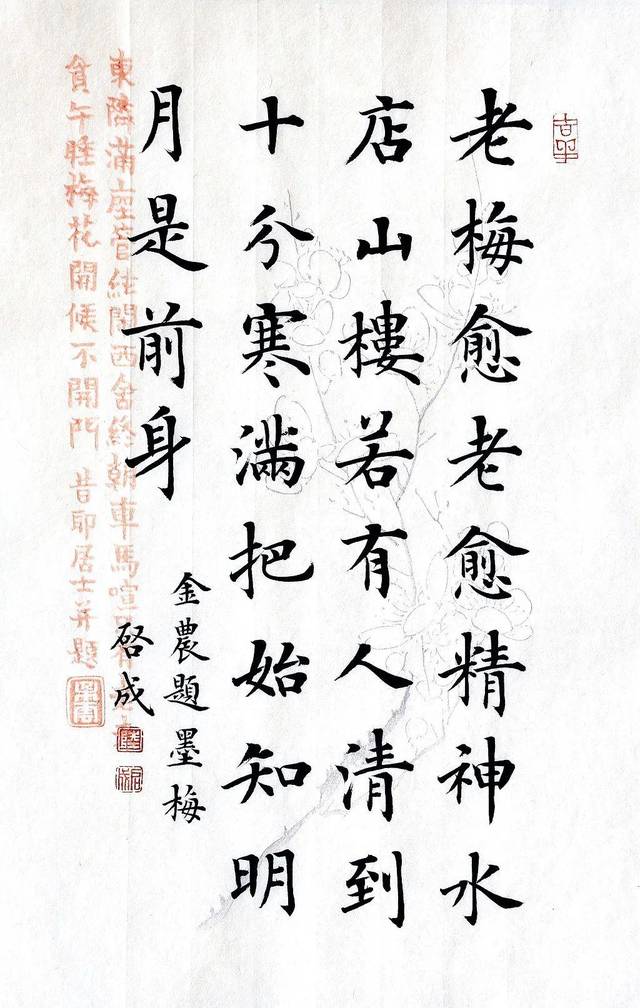 老梅愈老愈精神水
店山樓若有人清到
十分寒滿把始知明
月是前身
金農題墨梅
啓成
東隣滿座管絃鬧西舍終朝車馬喧
貪午睡梅花開候不開門 昔耶居士并題